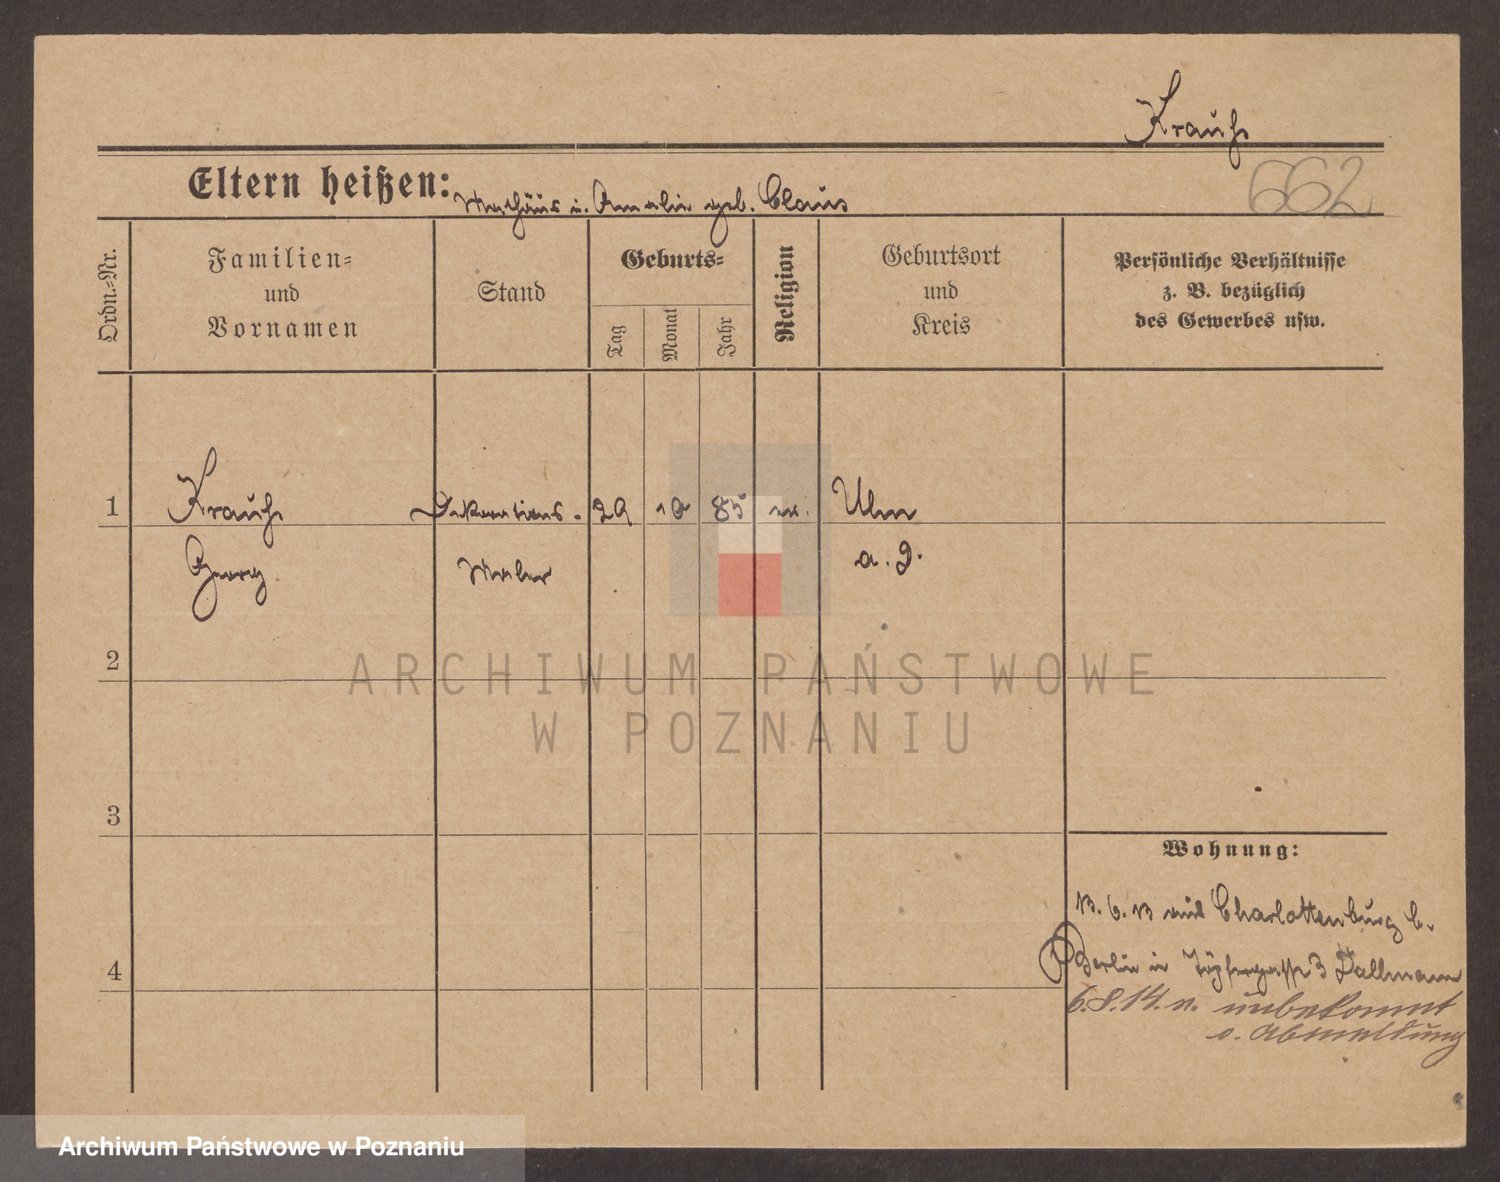 Krauß
662
Eltern heißen: Mathäus u. Amalie geb. Claus
Ordn.-Nr.
Familien-
und
Vornamen
Stand
Geburts-
Tag
Monat
Jahr
Religion
Geburtsort
und
Kreis
Persönliche Verhältnisse
z. B. bezüglich
des Gewerbes usw.
1 Krauß Dekorations- 29 10 85 ev. Ulm
Georg Maler a. D.
2
ARCHIWUM PAŃSTWOWE
W POZNANIU
3
Wohnung:
13. 6. 13 aus Charlottenburg b.
4
Berlin in Töpfergasse 3 Dallmann
6.8.14. n. unbekannt
o. Abmeldung
Archiwum Państwowe w Poznaniu